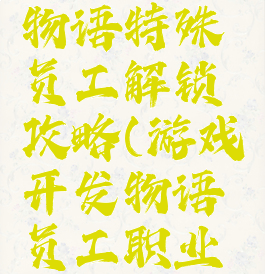 物语特殊
员工解锁
攻略(游戏
开发物语
员工职业